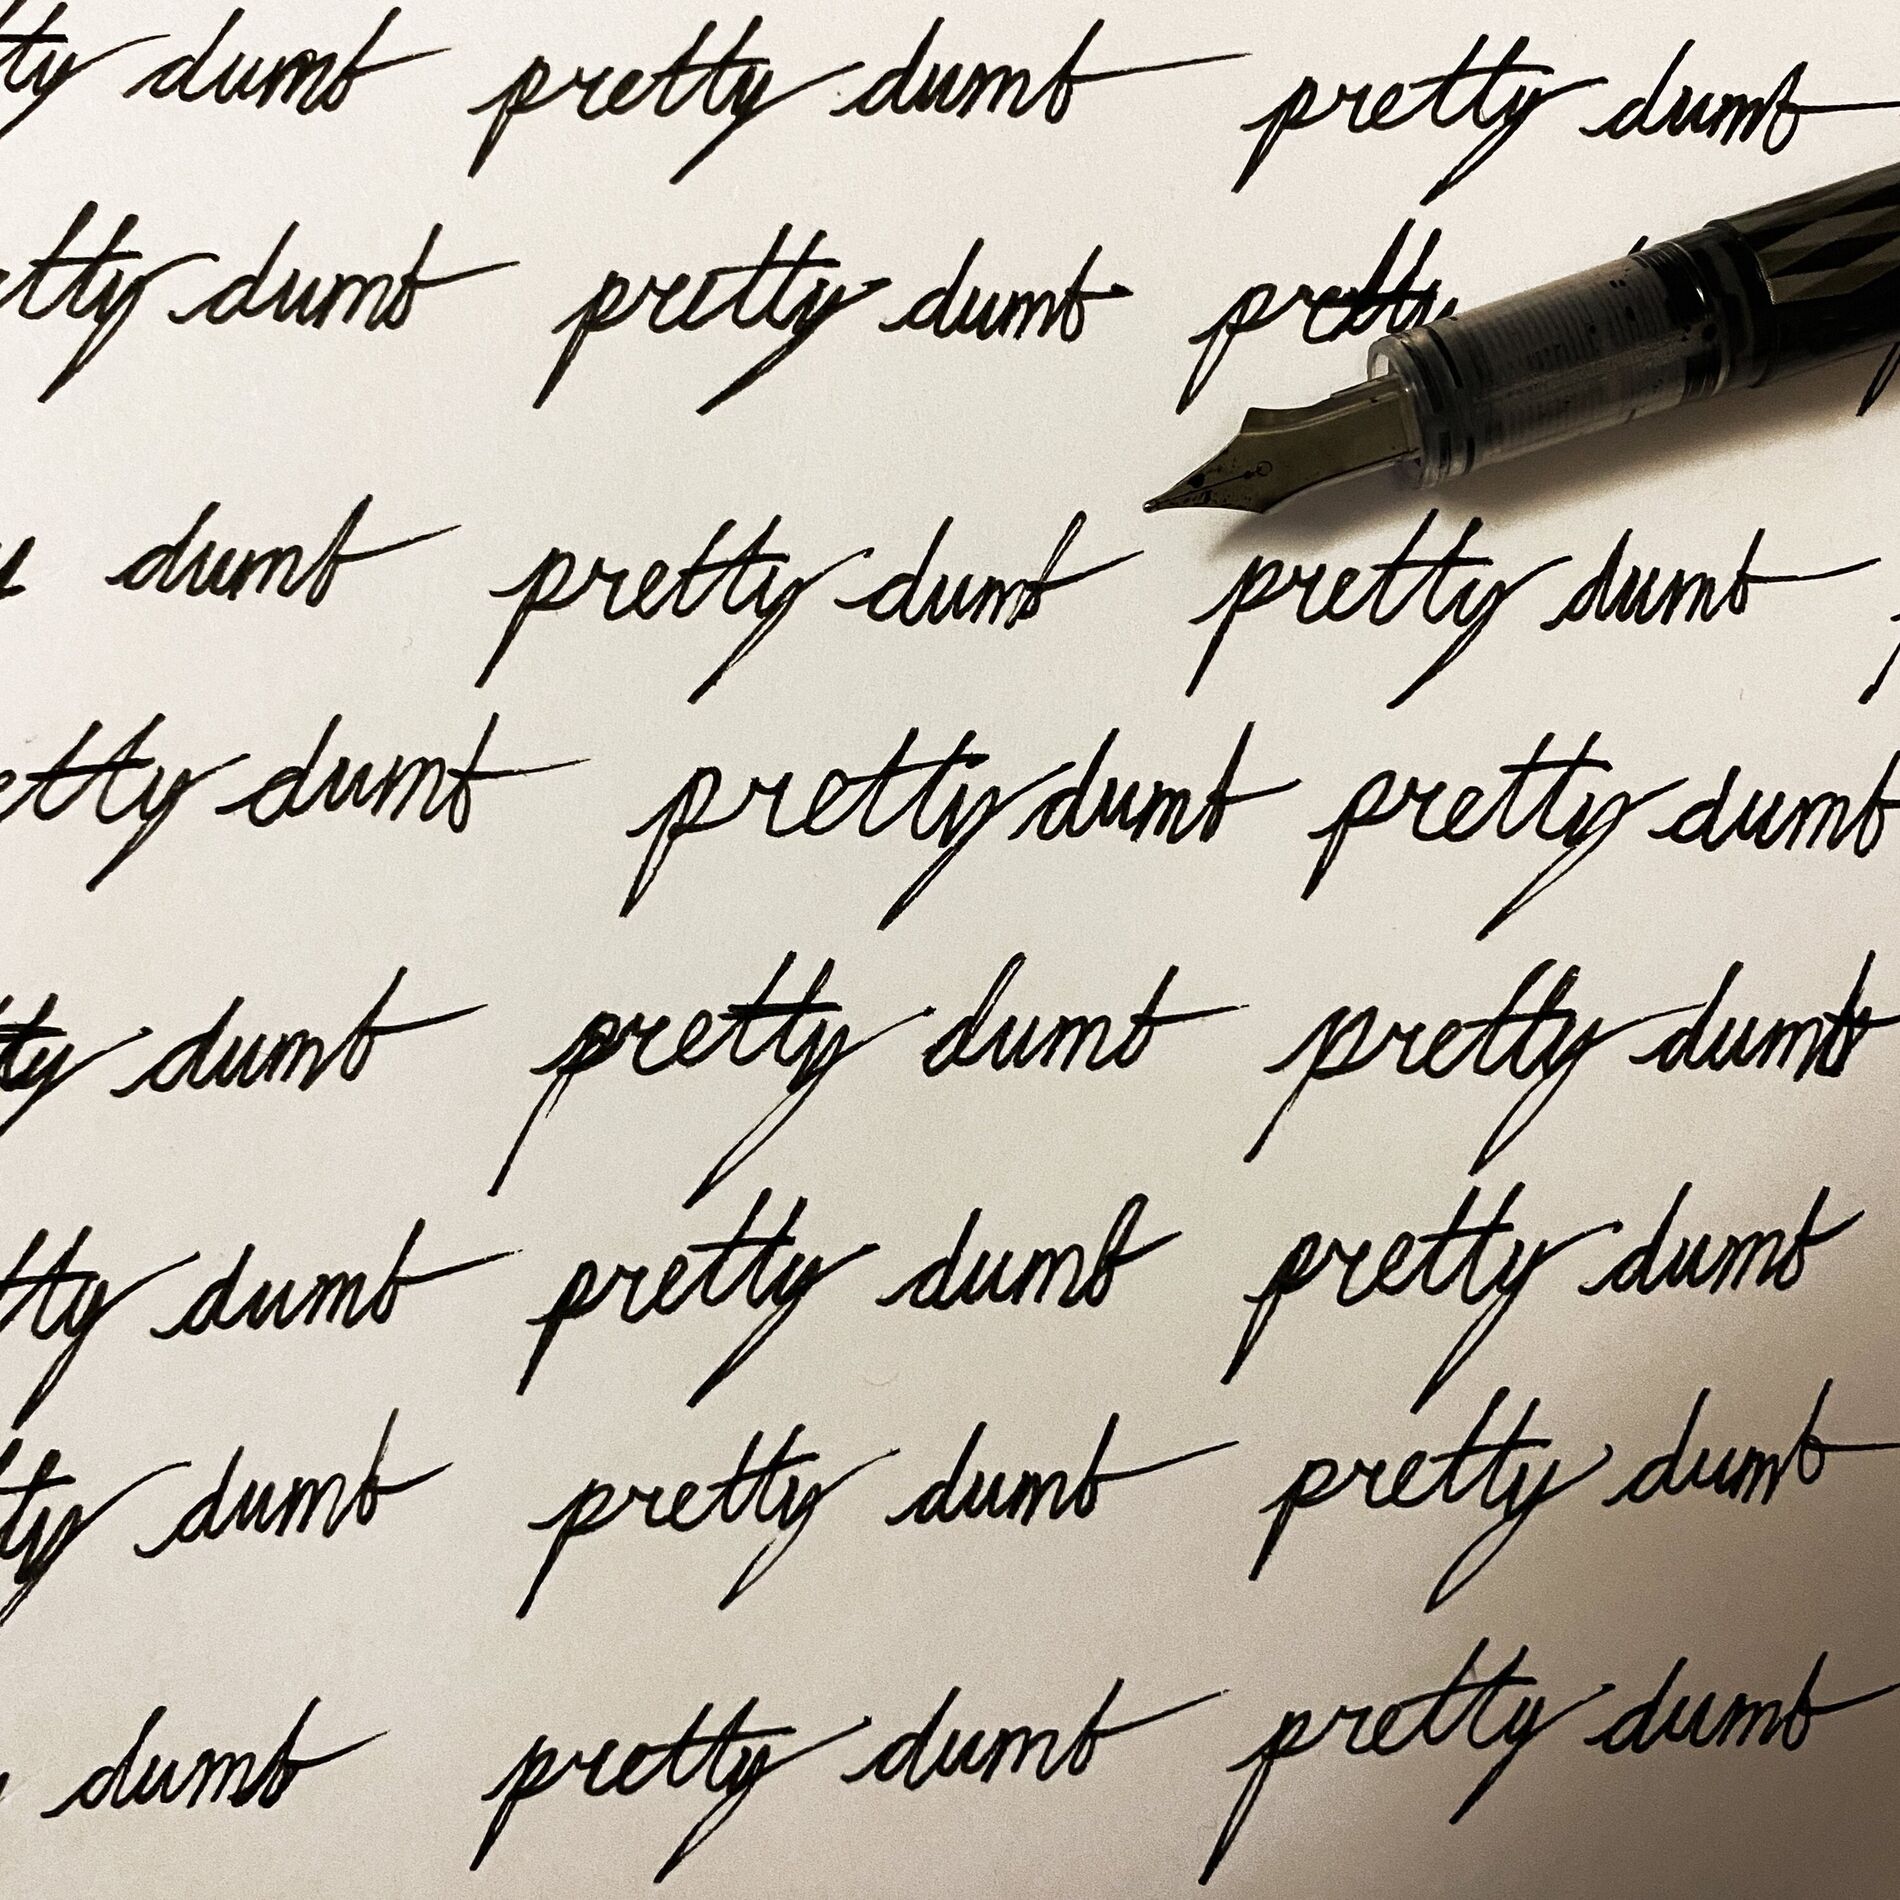 tty dumb pretty dumb pretty dumb
etty dumb pretty dumb pretty
y dumb pretty dumb pretty dumb
etty dumb pretty dumb pretty dumb
tty dumb pretty dumb pretty dumb
tty dumb pretty dumb pretty dumb
tty dumb pretty dumb pretty dumb
dumb pretty dumb pretty dumb